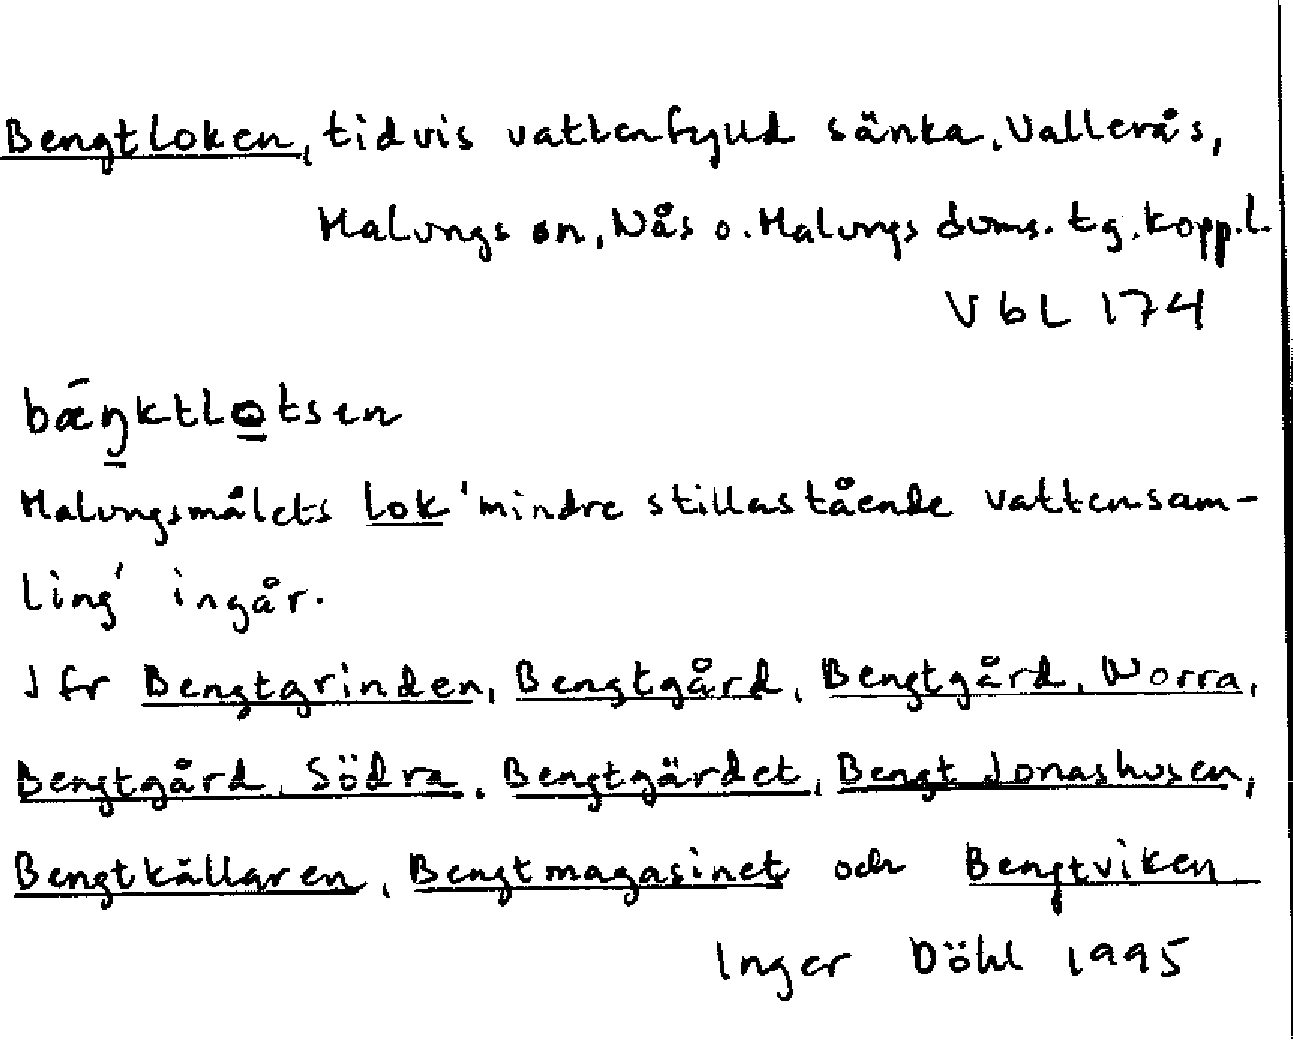 Bengtloken, tidvis vattenfylld sänka, Vallerås,
Malungs sn, Nås o. Malungs doms. tg. Kopp.l.
VbL 174
bǽŋktlo̲tsen
Malungsmålets lok 'mindre stillastående vattensam-
ling' ingår.
Jfr Bengtgrinden, Bengtgård, Bengtgård, Norra,
Bengtgård, Södra, Bengtgärdet, Bengt Jonashusen,
Bengtkällaren, Bengtmagasinet och Bengtviken
Inger Döhl 1995